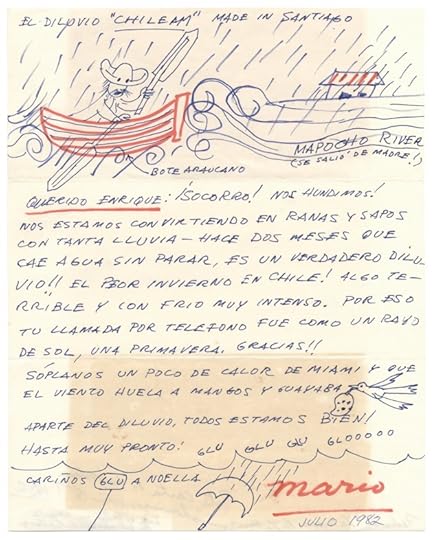 EL DILUVIO "CHILEAM" MADE IN SANTIAGO
MAPOCHO RIVER
(SE SALIÓ DE MADRE!)
BOTE ARAUCANO
QUERIDO ENRIQUE: ¡SOCORRO! NOS HUNDIMOS!
NOS ESTAMOS CONVIRTIENDO EN RANAS Y SAPOS
CON TANTA LLUVIA — HACE DOS MESES QUE
CAE AGUA SIN PARAR, ES UN VERDADERO DILU-
VIO!! EL PEOR INVIERNO EN CHILE! ALGO TE-
RRIBLE Y CON FRIO MUY INTENSO. POR ESO
TU LLAMADA POR TELEFONO FUE COMO UN RAYO
DE SOL, UNA PRIMAVERA. GRACIAS!!
SÓPLANOS UN POCO DE CALOR DE MIAMI Y QUE
EL VIENTO HUELA A MANGOS Y GUAYABA
APARTE DEL DILUVIO, TODOS ESTAMOS BIEN!
HASTA MUY PRONTO! GLU GLU GLU GLOOOOO
CARIÑOS GLU A NOELLA
mario
JULIO 1982